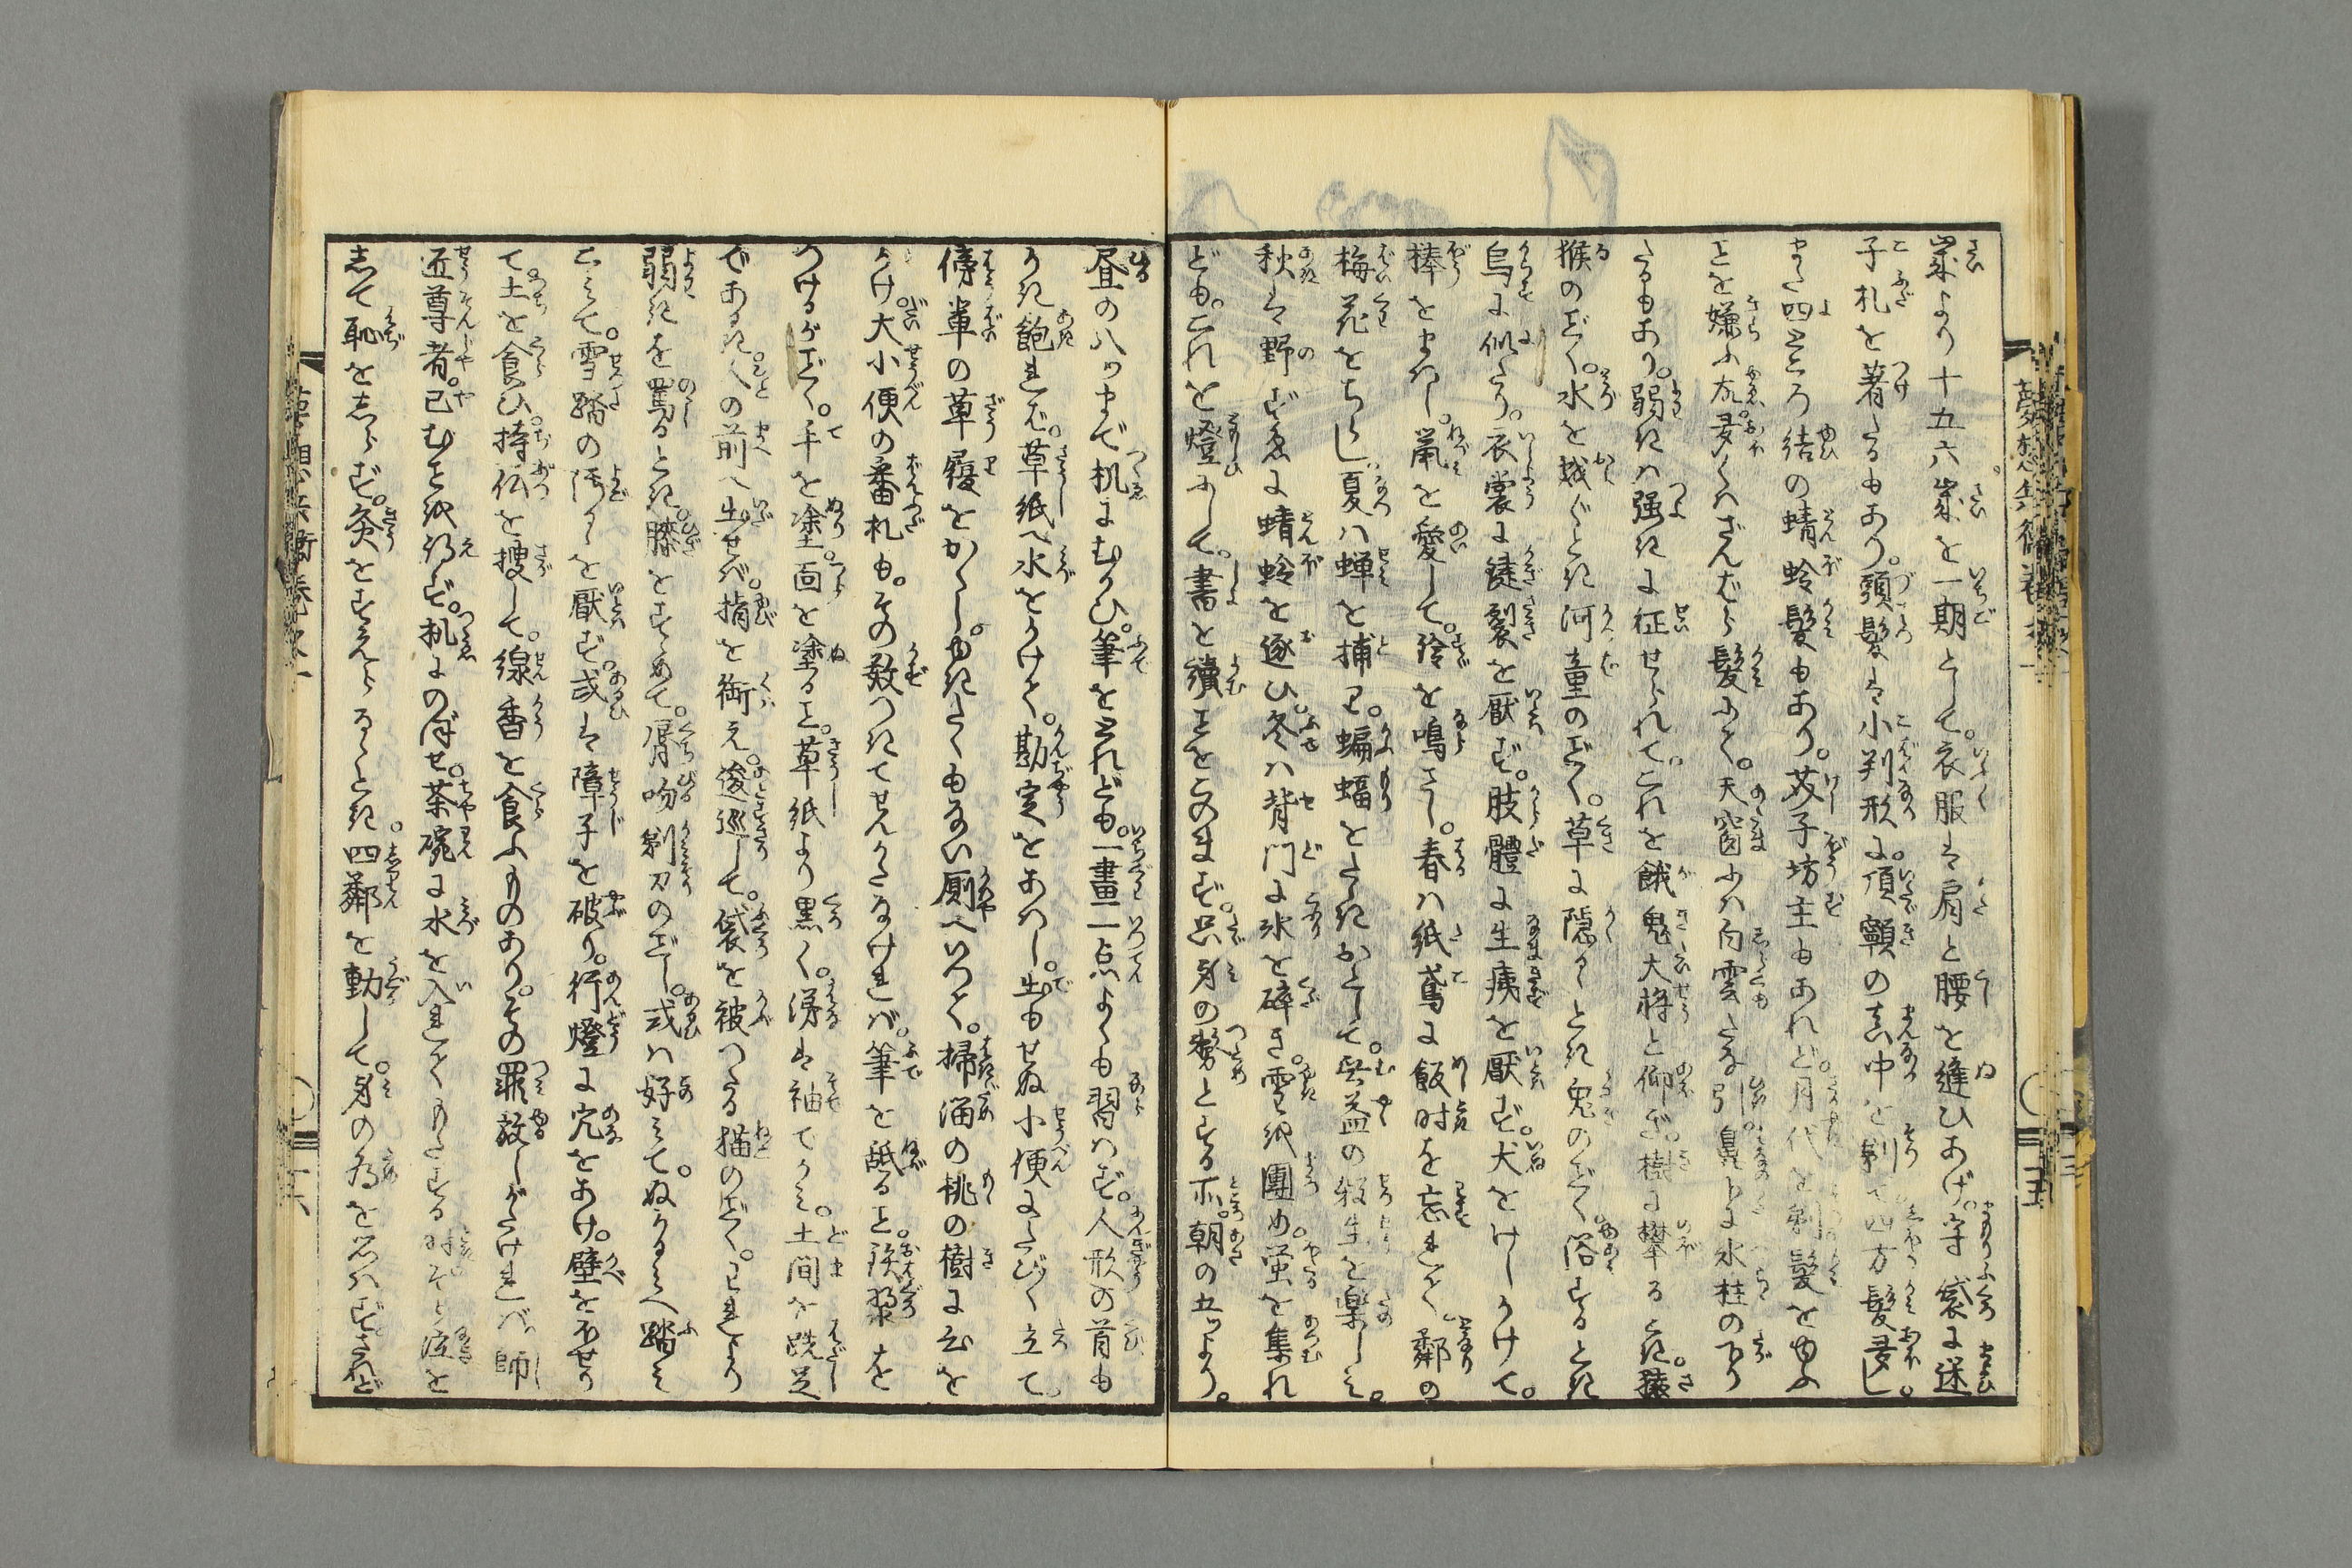 歳より十五六歳を一期として。衣服は肩と腰を縫ひあげ。守袋に迷
子札を着たるもあり。頭髪は小判形に。頂顖の真中を剃て四方髪多し。
また四ところ結の蜻蛉髪もあり。芥子坊主もあれど月代を剃髪をゆふ
ことを嫌ふ故。多くはざんばら髪にて。天窗には白雲たな引。鼻下に氷柱の下り
たるもあり。弱きは強きに征せられて。これを餓鬼大将と仰ぎ。樹に攀るとき。猿
猴のごとく。水を越ぐとき河童のごとく。草に隠るゝとき兎のごとく。浴するとき
烏に似たり。衣裳に鍵裂を厭ず。肢體に生疵を厭ず。犬をけしかけて。
棒をまはし。鼠を愛して。鈴を鳴らし。春は紙鳶に飯時を忘れて。鄰の
梅花をちらし夏は蝉を捕り。蝙蝠をたゝきおとして。無益の殺生を楽しみ。
秋は野ずゑに蜻蛉を逐ひ。冬は背門に氷を砕き。雪を團め。蛍を集れ
ども。これを燈にして。書を讀ことをこのまず。只身の勤とする所。朝の五ッより。
昼の八ッまで机にむかひ。筆をとれども。一畫一点よくも習はず。人形の首も
かき飽れば。草紙へ水をかけて。勘定をあはし。出もせぬ小便にたび〳〵立て。
傍輩の草履をかくし。ゆきたくもない厠へいつて。掃溜の桃の樹に尿を
かけ。大小便の番札も。その数つきてせんかたなければ。筆を舐ること。鉄漿を
つけるがごとく。手を塗。面を塗ること。草紙より黒く。洟は袖でかみ。土間を跣足
であるき。人の前へ出せば。指を銜え。逡巡して。袋を被つたる猫のごとく。われより
弱きを罵るとき。膝をすゝめて。唇吻剃刀のごとし。或は好みて。ぬかるみへ踏
こみて。雪踏の汚るゝを厭ず。或は障子を破り。行燈に穴をあけ。壁をむせり
て土を食ひ。持仏を捜して。線香を食ふものあり。その罪赦しがたければ。師
匠尊者。已むことを得ず。机にのぼせ。茶碗に水を入れてもたする時。そら泣を
して恥をしらず。灸をすえらるゝとき。四鄰を動して。身の為を思はず。されど